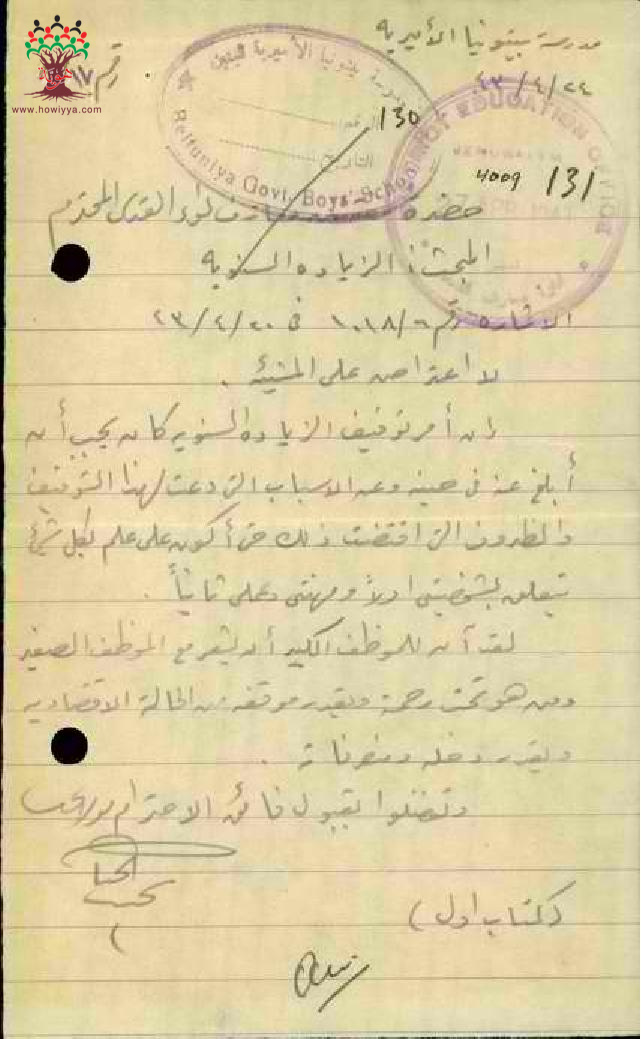 مدرسة بيتونيا الأميرية
٢٤/٤/٤٢
رقم ١٧
www.howiyya.com
مدرسة بيتونيا الأميرية للبنين
الرقم
التاريخ
Beituniya Govt. Boys' School
130
EDUCATION OFFICE
JERUSALEM
4009 131
حضرة معارف لواء القدس المحترم
المبحث: الزيادة السنوية
الاشارة رقم ١٠١٨/٦ في ٢٠/٤/٤٣
لا اعتراض على المشيئة.
إن أمر توقيف الزيادة السنوية كان يجب أن
أبلغ عنه في حينه وعن الاسباب التي دعت لهذا التوقيف
والظروف التي اقتضت ذلك حتى أكون على علم بكل شيء
يتعلق بشخصيتي اولاً ومهنتي وعملي ثانياً.
لقد آن للموظف الكبير أن يشعر مع الموظف الصغير
ومن هو تحت رحمته ويقدر موقفه من الحالة الاقتصادية
ويقدر دخله ومصروفاته.
وتفضلوا بقبول فائق الاحترام
(كتاب اول)